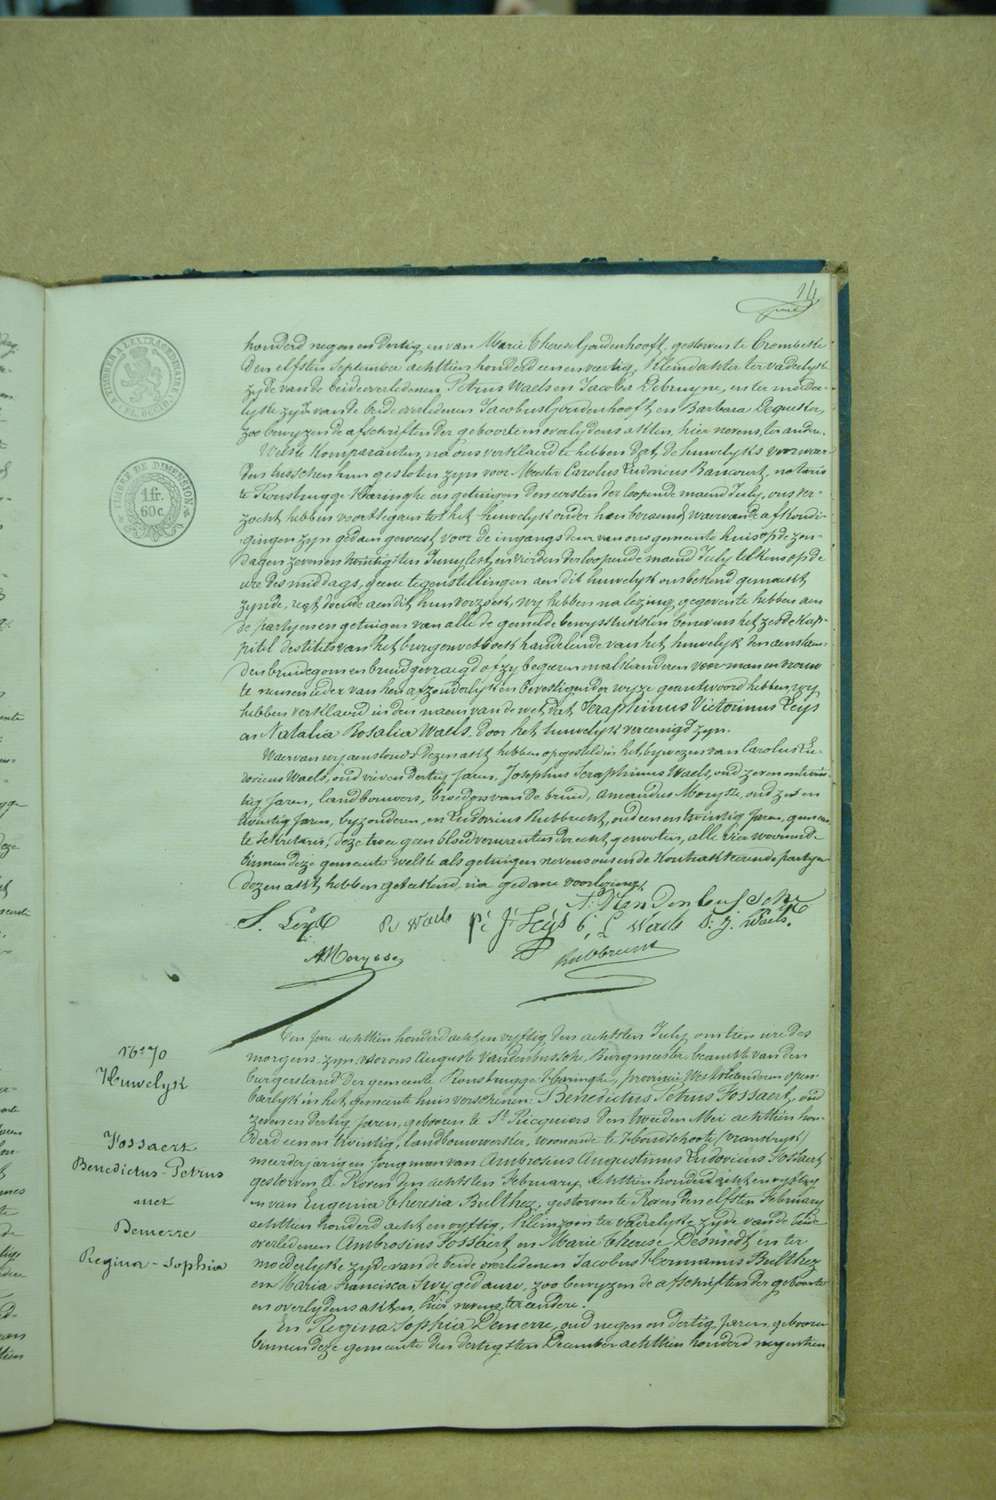 14
TIMBRE A L'EXTRAORDINAIRE
TIMBRE DE DIMENSION
1 fr.
60 c.
honderd negen en dertig, en van Marie Therese Goudenhooft, gestorven te Crombeke
den elfsten September achttien honderd een en veertig, Kleindochter ter vaderlyke
zyde van de beide overledenen, Petrus Waels en Jacoba Debruyne, en ter moeder-
lyke zyde van de beide overledenen Jacobus Goudenhooft en Barbara Dequeker,
zoo bewyzen de afschriften der geboorte en overlydens akten, hier nevens, ter andere.
Welke komparanten, na ons verklaerd te hebben dat de huwelyks voorwaer-
den tusschen hun gesloten zyn voor Meester Carolus Ludovicus Bancourt, notaris
te Rousbrugge Haringhe en getuigen den eersten der loopende maend July, ons ver-
zocht hebben voorttegaen tot het huwelyk onder hen beraemd, waervan de afkondi-
gingen zyn gedaen geweest voor de ingangs deur van ons gemeente huis op de zon-
dagen zeven en twintigsten Juny lest, en vierden der loopende maend July telkens op de
ure des middags, geene tegenstellingen aen dit huwelyk ons bekend gemaekt
zynde, regt doende aen dit hun verzoek, wy hebben na lezing gegeven te hebben aen
de partyen en getuigen van alle de gemelde bewysstukken benevens het zesde kap-
pittel des titels van het burgerwetboek handelende van het huwelyk den aenstaen-
den bruidegom en bruid gevraegd of zy begeeren malkanderen voor man en vrouw
te nemen ieder van hen afzonderlyk en bevestigender wyze geantwoord hebbende, wy
hebben verklaerd in den naem van de wet, dat Seraphinus Victorinus Leys
en Natalia Rosalia Waels door het huwelyk vereenigd zyn.
Waer van wy aenstonds dezen akt hebben opgesteld in het bywezen van Carolus Lu-
dovicus Waels, oud vier en dertig jaren, Josephus Seraphinus Waels, oud zeven en twin-
tig jaren, landbouwers, broeders van de bruid, Amandus Morysse, oud zes en
twintig jaren, byzonderen, en Ludovicus Rubbrecht, oud een en twintig jaren, gemeen-
te sekretaris, deze twee geen bloedverwanten der echtgenooten, alle vier woonende
binnen deze gemeente welke als getuigen nevens ons en de kontrakteerende partyen
dezen akt hebben geteekend, na gedane voorlezing.
A. Vandenbussche
S. Leys R. Waels P. J. Leys C. L. Waels S. J. Waels
A Morysse Rubbrecht
N° 70
Huwelyk
Fossaert
Benedictus-Petrus
met
Demerre
Regina-Sophia
Den jare achttien honderd acht en vyftig den achtsten July om tien ure des
morgens zyn voor ons Auguste Vandenbussche, Burgmeester, beambte van den
burgerstand der gemeente Rousbrugge-Haringhe, provincie Westvlaenderen open-
baerlyk in het gemeente huis verschenen: Benedictus Petrus Fossaert, oud
zeven en dertig jaren, geboren te St Ricquiers den tweeden Mei achttien hon-
derd een en twintig, landbouwwerker, woonende te Hondschoote (vrankryk)
meerderjarigen jongman van Ambrosius Augustinus Ludovicus Fossaert
gestorven te Rexen den achtsten February achttien honderd acht en vyftig
en van Eugenia Theresia Bulthez, gestorven te Rexen den elfsten February
achttien honderd acht en vyftig, Kleinzoon ter vaderlyke zyde van de beide
overledenen Ambrosius Fossaert en Marie Therese Desmidt, en ter
moederlyke zyde van de beide overledenen Jacobus Hermanus Bulthez
en Maria Francisca Swyngedauw, zoo bewyzen de afschriften der geboorte
en overlydens akten, hier nevens, ter andere.
En Regina Sophia Demerre, oud negen en dertig jaren, geboren
binnen deze gemeente den dertigsten December achttien honderd negentien